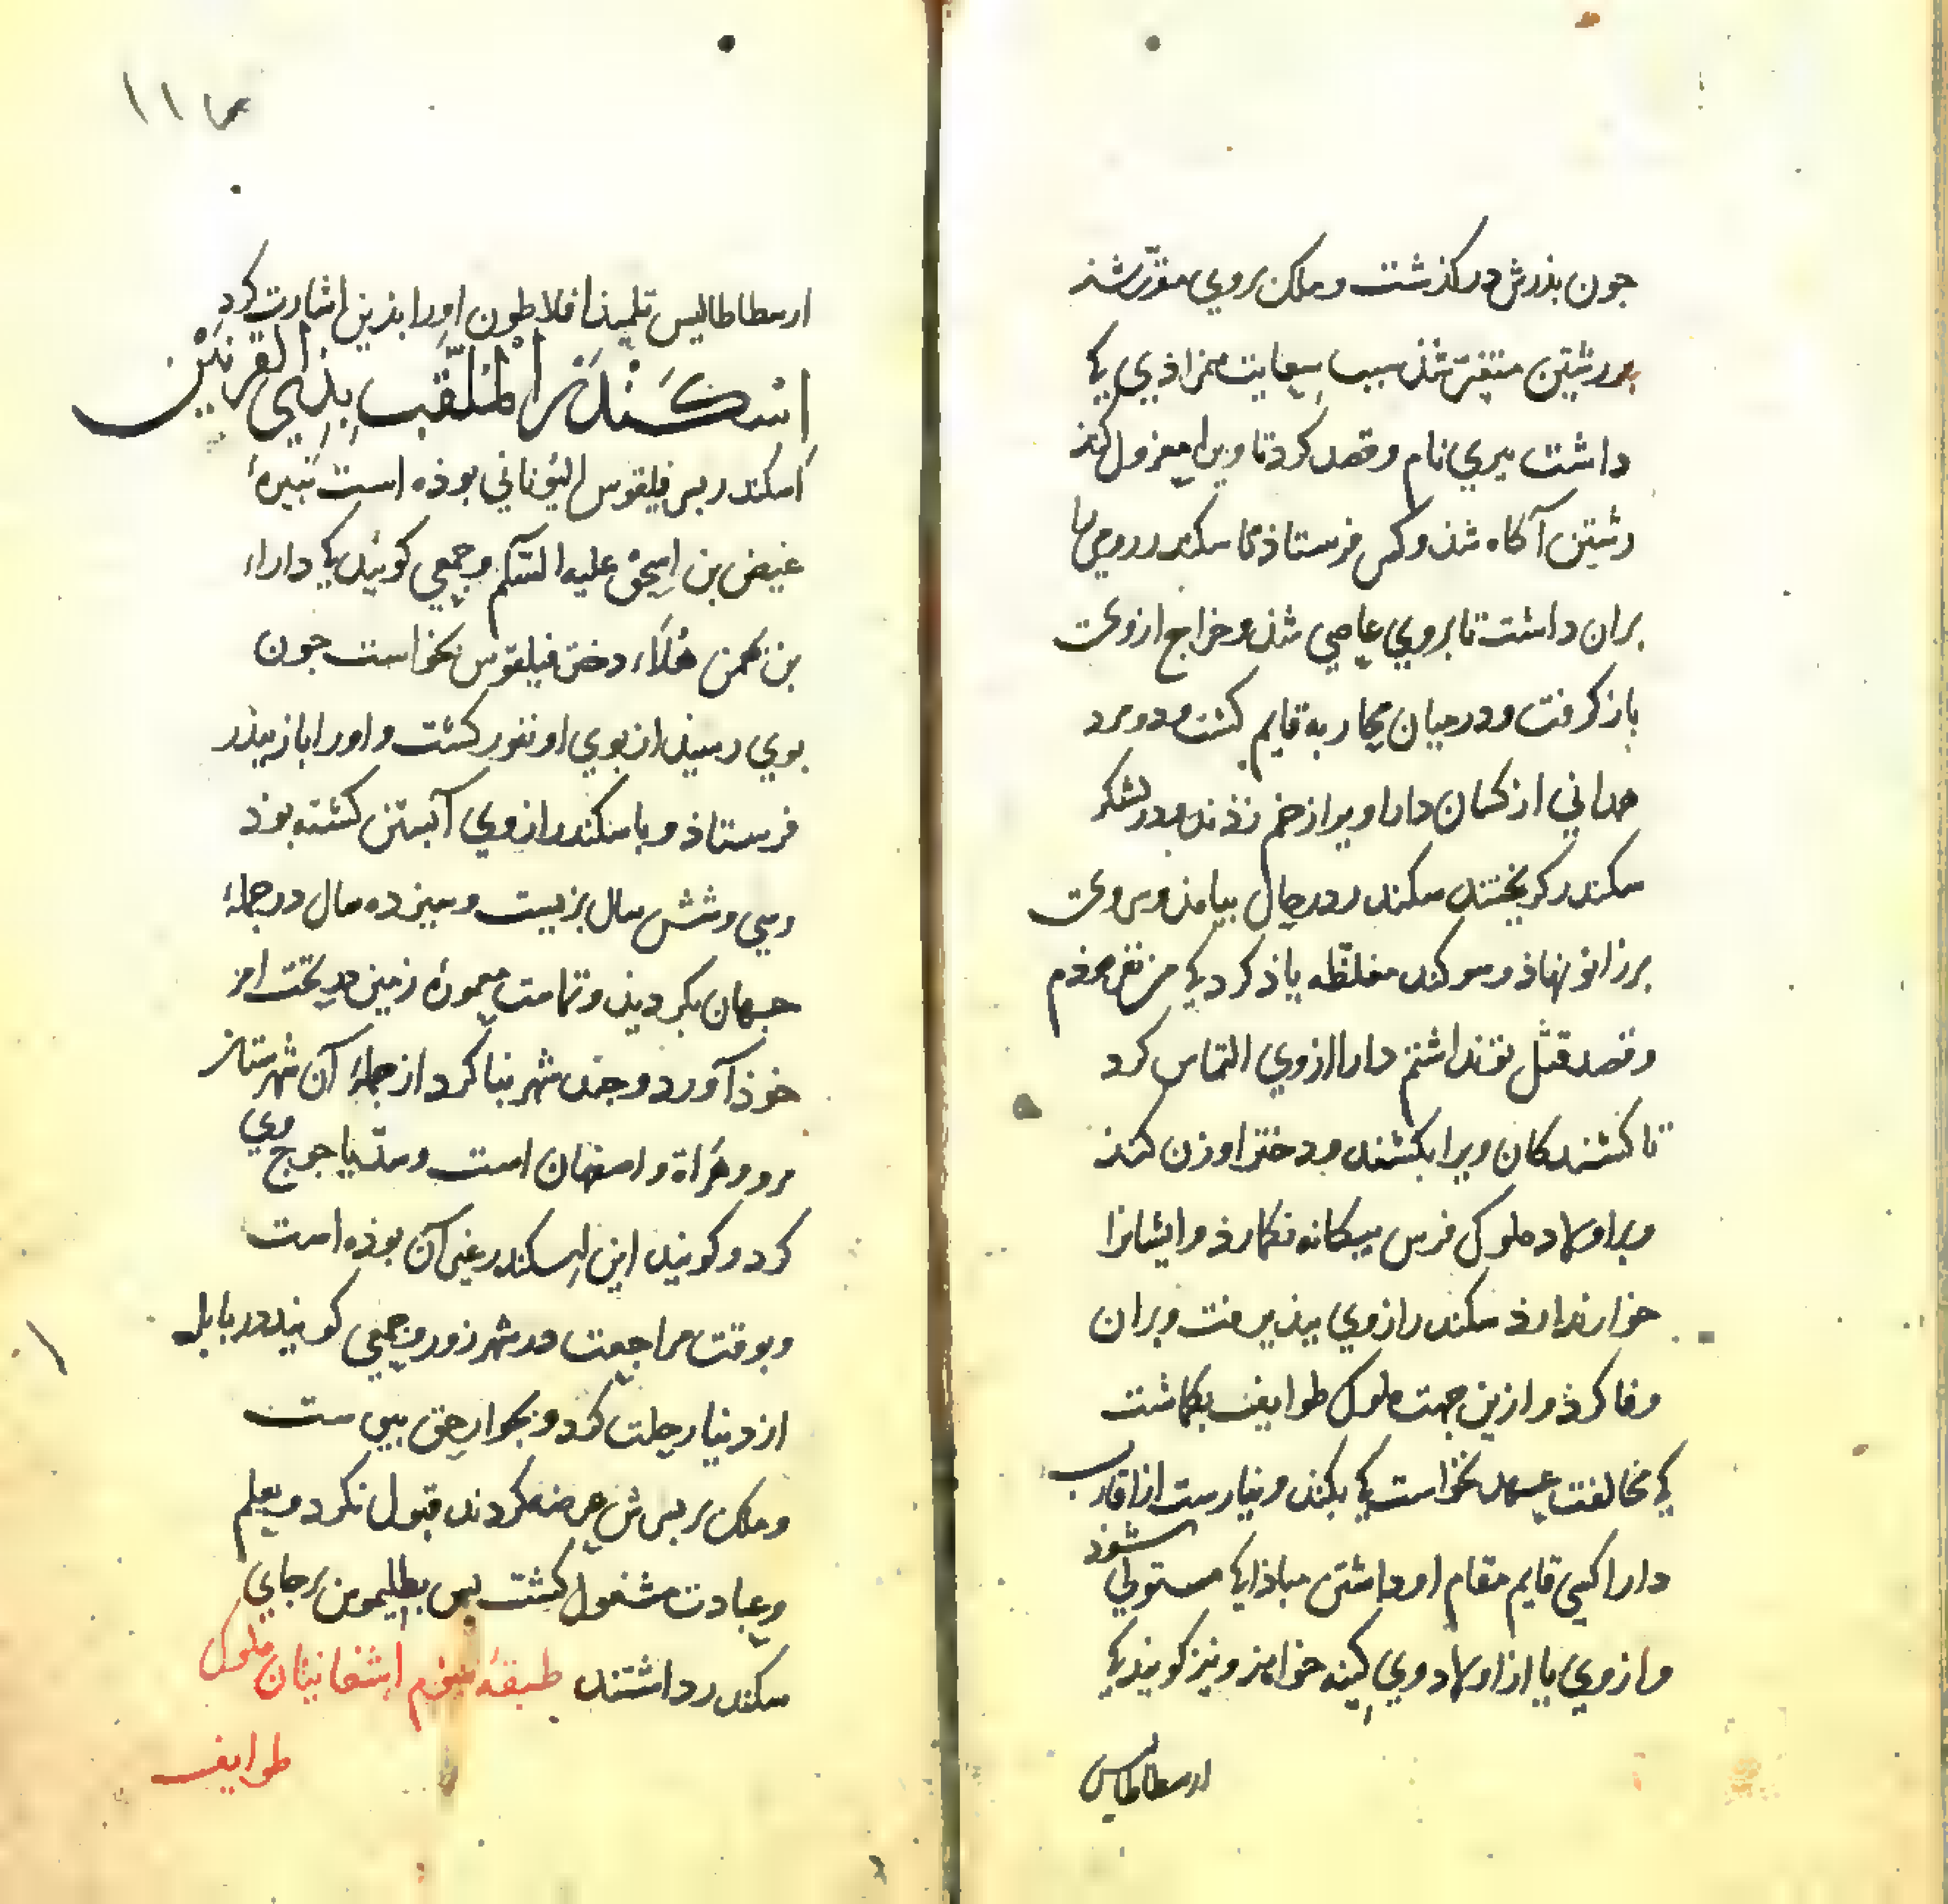 جون بذرش درکذشت و ملک بر وی مقرّر شذ
بر رشتین متغیّر شذ سبب سعایت همزاذی کی
داشت میری نام و قصد کرد تا ویرا معزول کنذ
رشتین آکاه شذ و کس فرستاذ تا اسکندر رومی را
بران داشت تا بر وی عاصی شذ و خراج از وی
باز کرفت و در میان محاربه قایم کشت و دو مرد
همدانی از کسان دارا ویرا زخم زذند و در لشکر
سکندر کریختند سکندر در حال بیامذ و سر وی
بر زانو نهاذ و سوکند مغلّظه یاذ کرد کی من نفرموذم
و قصد قتل تو نداشتم دارا از وی التماس کرد
تا کشندکان ویرا بکشند و دختر او زن کند
و بر اولاد ملوک فرس بیکانه نکمارذ و ایشانرا
خوار ندارذ سکندر از وی بپذیرفت و بران
وفا کرذ و ازین جهت ملوک طوایف بکماشت
کی مخالفت عهد نخواست کی بکند و نیارست از اقارب
دارا کسی قایم مقام او داشتن مباذا کی مستولی شوذ
و از وی یا از اولاد وی کینه خواهذ و نیز کویند کی
ارسطاطالیس
۱۱۴
ارسطاطالیس تلمیذ افلاطون او را بذین اشارت کرد
اسْكَنْدَر الْمُلَقَّب بِذِي الْقَرْنَيْن
اسکندر بن فیلقوس الیونانی بوذه است نبیرهٔ
عیص بن اسحق علیه السّلم و جمعی کویند کی داراء
بن بهمن هلاء دختر فیلقوس بخواست جون
بوی رسیذ از بوی او نفور کشت و او را باز پیذر
فرستاذ و باسکندر از وی آبستن کشته بوذ
و سی و شش سال بزیست و سیزده سال در جملهٔ
جهان بکردیذ و تمامت معمورهٔ زمین در تحت امر
خوذ آورد و جند شهر بنا کرد از جملهٔ آن شهرستان
مرو و هراة و اصفهان است و سدّ یاجوج وی
کرد و کویند این اسکندر غیر آن بوذه است
و بوقت مراجعت در شهر زور و جمعی کویند در بابل
از دنیا رحلت کرد و بجوار حق پیوست
و ملک بر پسرش عرضه کردند قبول نکرد و بعلم
و عبادت مشغول کشت پس بطلیموس بر جای
سکندر داشتند طبقهٔ سیوم اشغانیان ملوک
طوایف